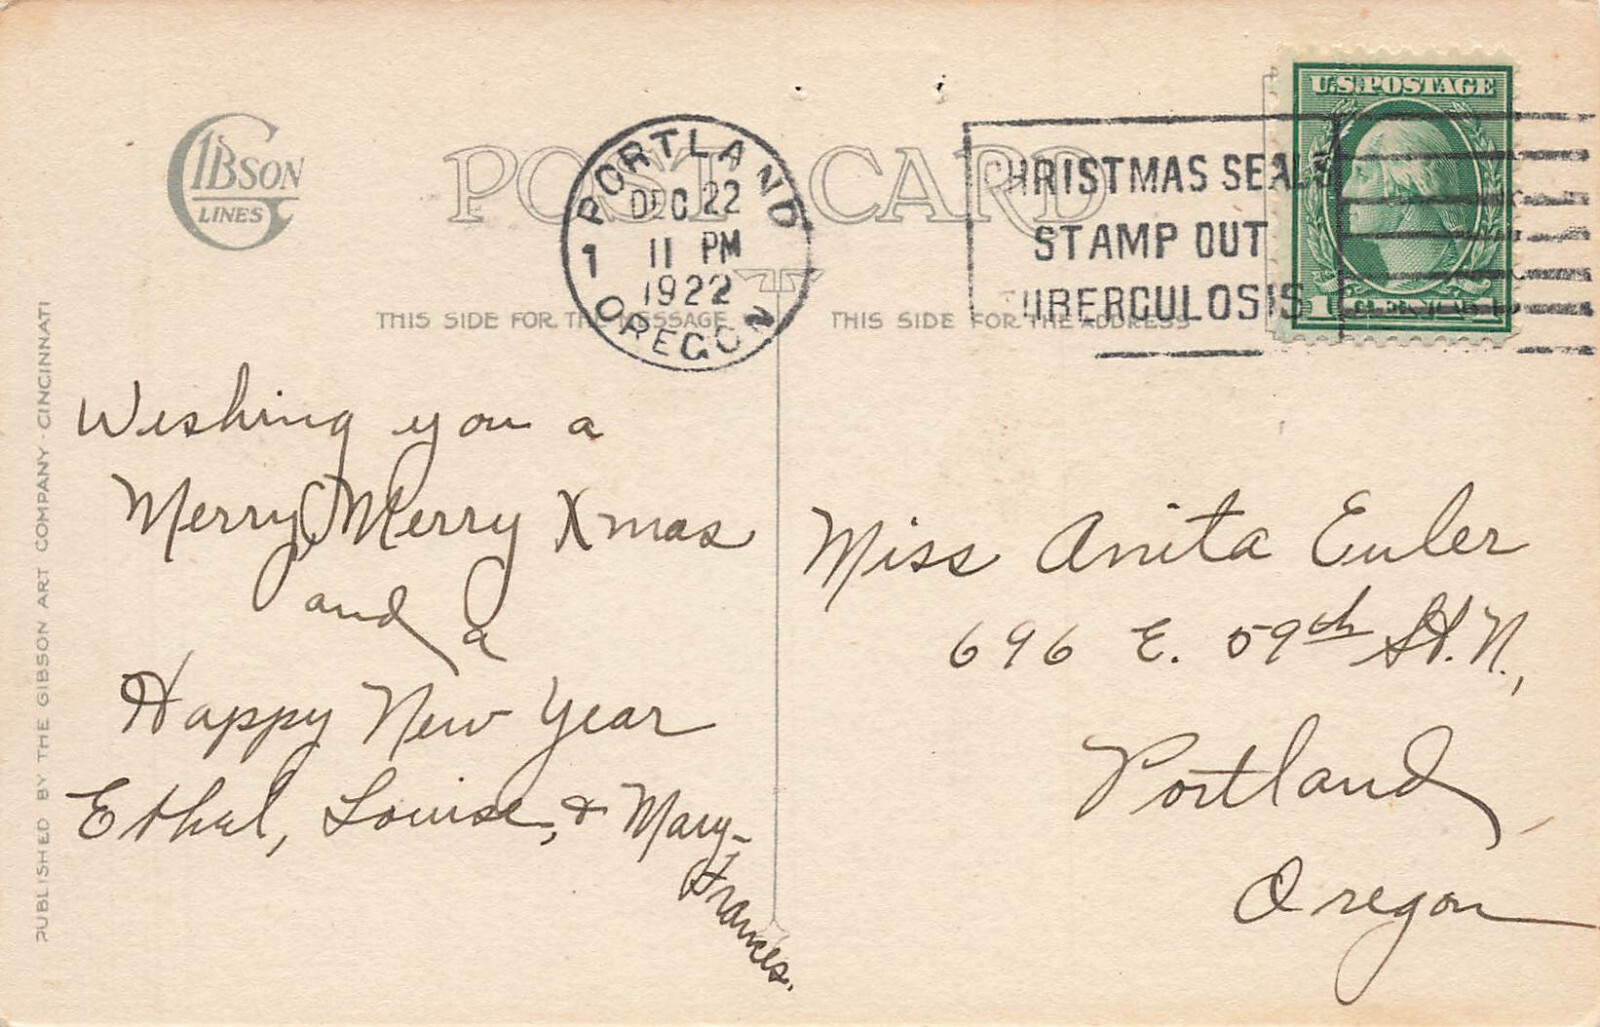 GIBSON
LINES
POST CARD
PORTLAND
DEC 22
11 PM
1922
1
OREGON
CHRISTMAS SEALS
STAMP OUT
TUBERCULOSIS
U.S. POSTAGE
1 CENT 1
THIS SIDE FOR THE MESSAGE
THIS SIDE FOR THE ADDRESS
PUBLISHED BY THE GIBSON ART COMPANY · CINCINNATI
Wishing you a
Merry, Merry Xmas
and a
Happy New Year
Ethel, Louise, & Mary-
Frances.
Miss Anita Euler
696 E. 59th St. N.,
Portland,
Oregon